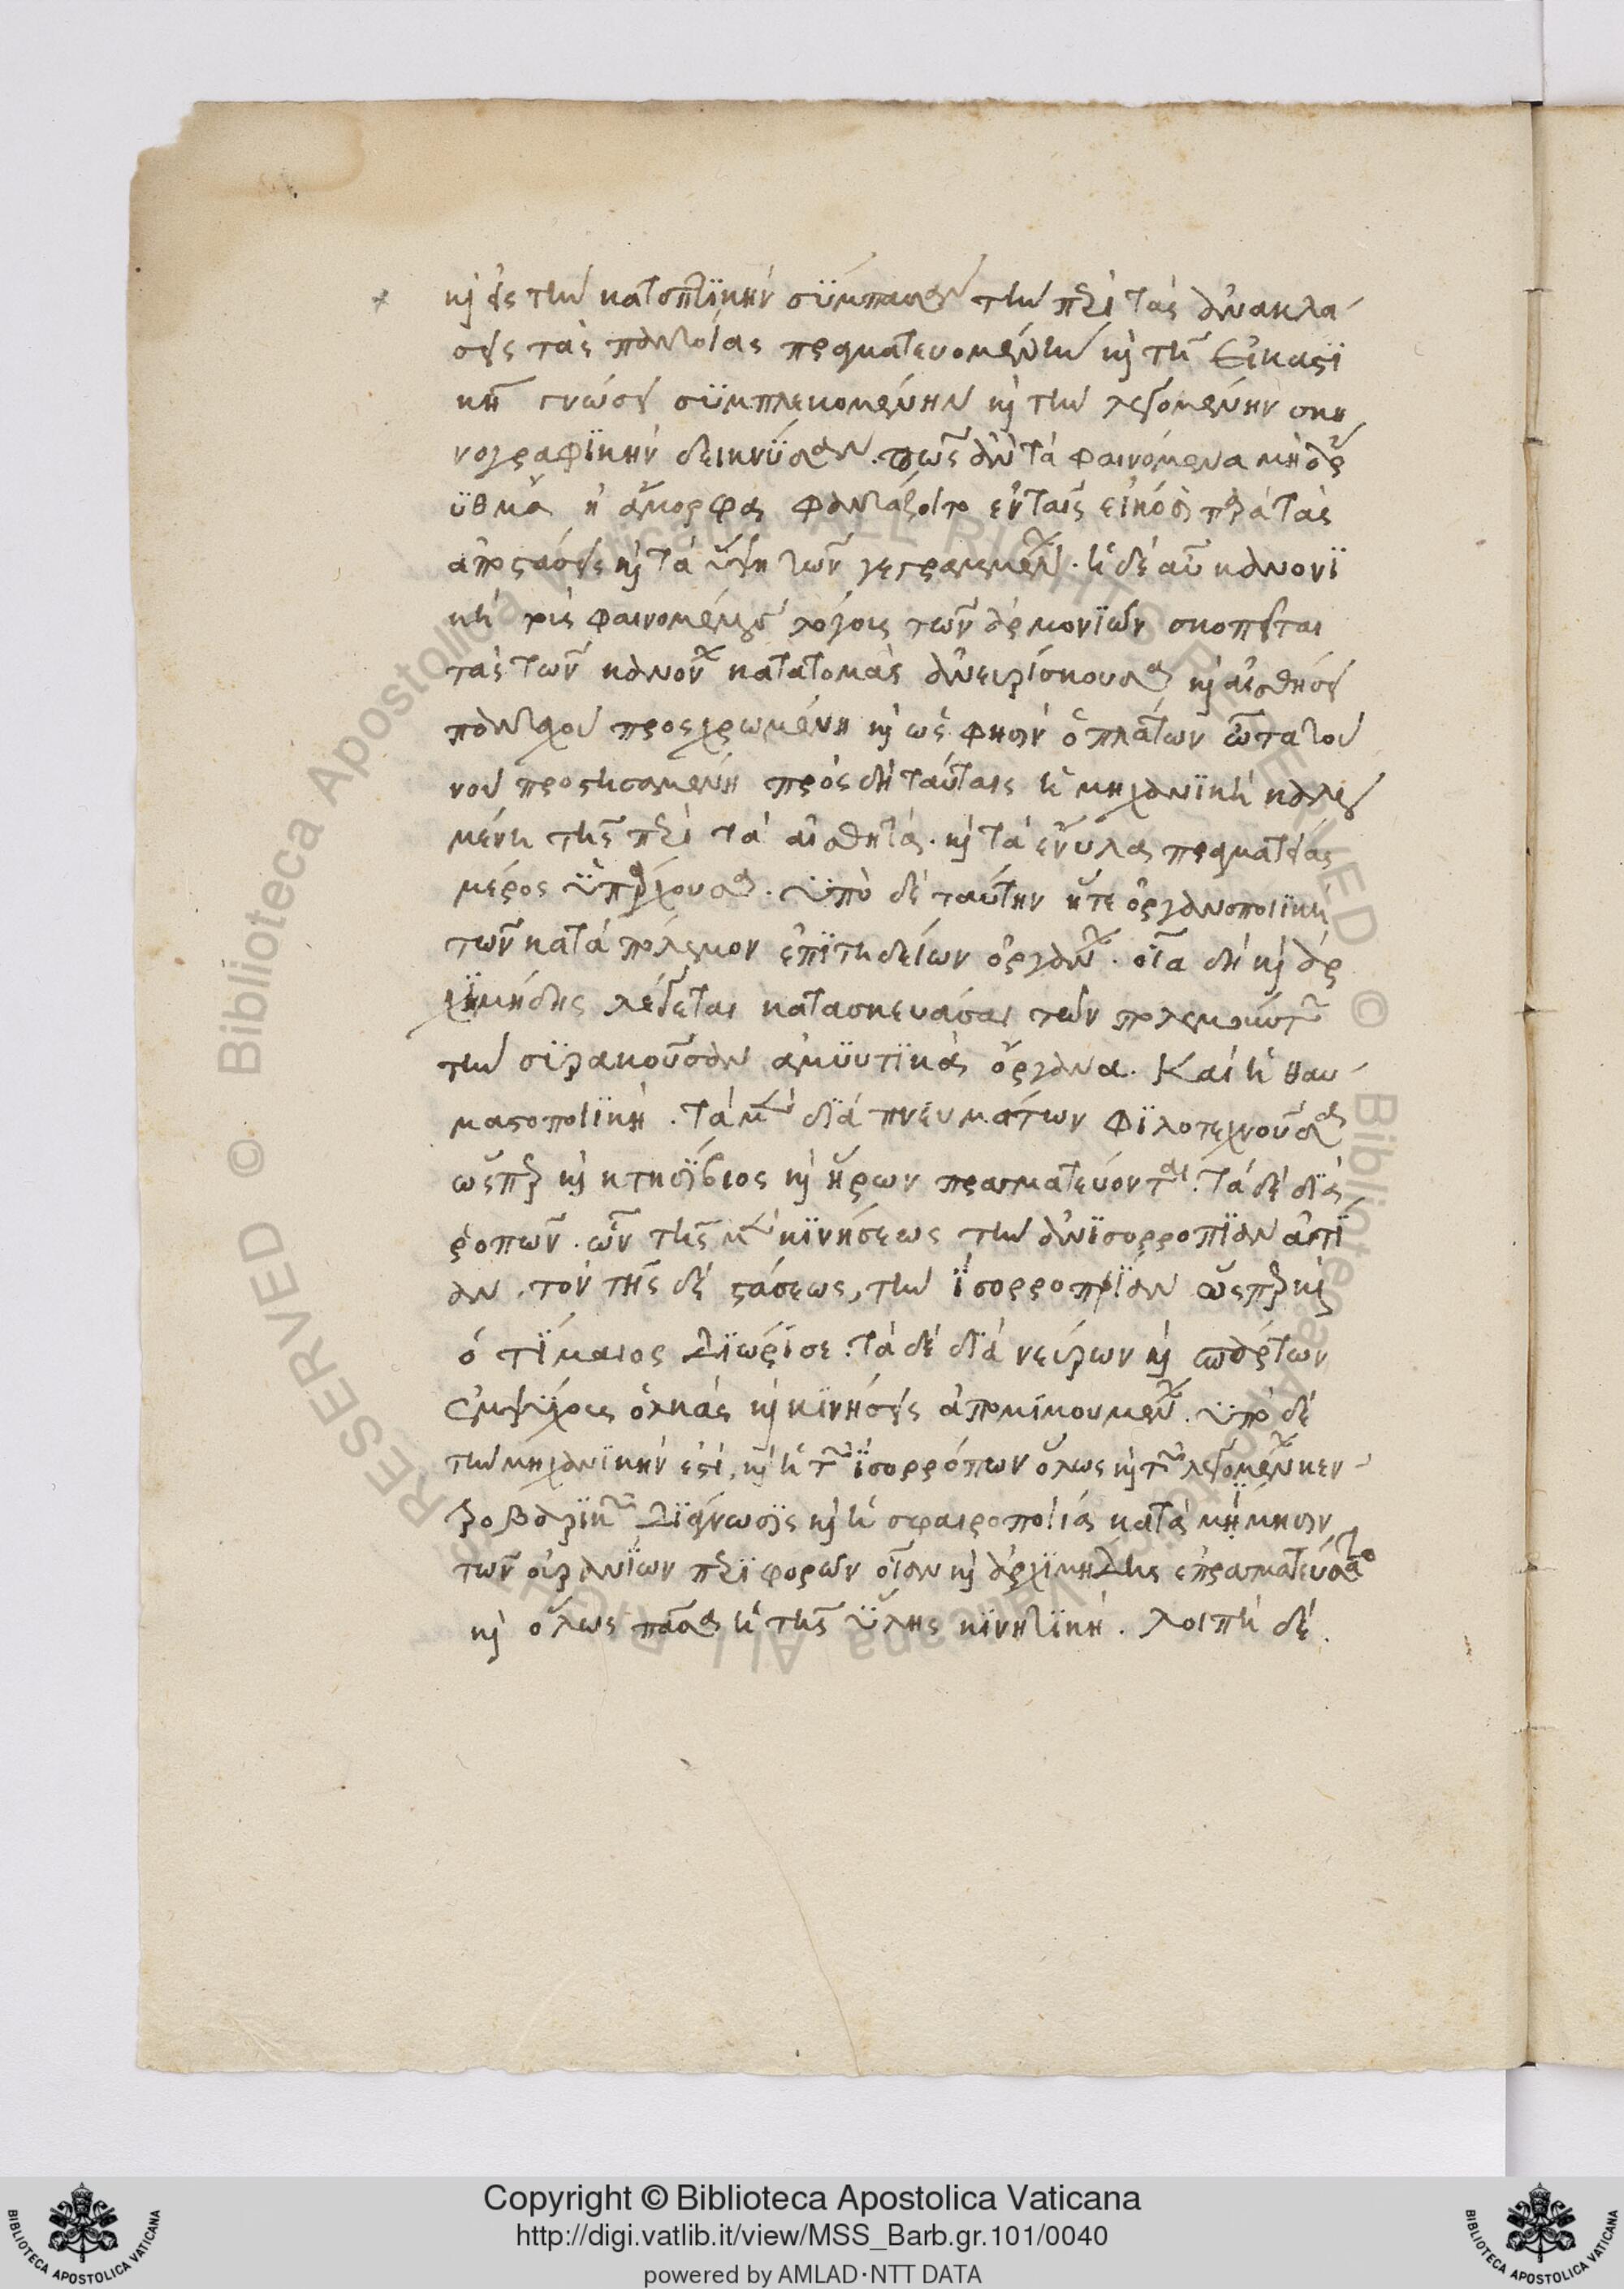 καὶ εἰς τὴν κατοπτϊκὴν σϋμπασαν τὴν περὶ τὰς ἀνακλά
σεις τὰς παντοίας πραγματευομένην καὶ τῇ εἰκαστϊ
κῇ γνώσει σϋμπλεκομένην καὶ τὴν λεγομένην σκη
νογραφϊκὴν δεικνῦσαν. πῶς ἂν τὰ φαινόμενα μὴ ἄρ
ϋθμα ἢ ἄμορφα φαντάζοιτο ἐν ταῖς εἰκόσι παρὰ τὰς
ἀποστάσεις καὶ τὰ ὕψη τῶν γεγραμμένων. ἡ δὲ αὖ κανονϊ
κὴ τοὺς φαινομένους λόγους τῶν ἁρμονϊῶν σκοπεῖται
τὰς τῶν κανόνων κατατομὰς ἀνευρίσκουσα καὶ αἰσθήσει
πανταχοῦ προσχρωμένη καὶ ὥς φησιν ὁ πλάτων ὦτα τοῦ
νοῦ προστησαμένη πρὸς δὴ ταύταις ἡ μηχανϊκὴ καλου
μένη τῆς περὶ τὰ αἰσθητὰ. καὶ τὰ ἔνυλα πραγματείας
μέρος ὑπάρχουσα. ϋπὸ δὲ ταύτην ἥτε ὀργανοποιϊκὴ
τῶν κατὰ πόλεμον ἐπϊτηδείων ὀργάνων. οἷα δὴ καὶ ἀρ
χϊμήδης λέγεται κατασκευάσαι τῶν πολεμούντων
τὴν σϊρακοῦσαν ἀμϋυτϊκὰ ὄργανα. Καὶ ἡ θαυ
ματοποιϊκὴ. τὰ μὲν δϊὰ πνευμάτων φϊλοτεχνοῦσα
ὥσπερ καὶ κτησίβιος καὶ ἥρων πραγματεύονται. τὰ δὲ δϊὰ
ῥοπῶν. ὧν τῆς μὲν κϊνήσεως τὴν ἀνϊσορροπϊαν αἰτϊ
αν. τὸν τῆς δὲ στάσεως, τὴν ϊσορροπϊαν ὥσπερ καὶ
ὁ τΐμαιος διώρισε. τὰ δὲ δϊὰ νεύρων καὶ σπάρτων
ἐμψύχοις ὁλκὰς καὶ κϊνήσεις ἀπομϊμουμένων. ϋπὸ δὲ
τὴν μηχανϊκὴν ἐστὶ, καὶ ἡ τῶν ϊσορρόπων ὅλως καὶ τῶν λεγομένων κεν
τροβαρϊκῶν δϊάγνωσϊς καὶ ἡ σφαιροποιία κατὰ μΐμησιν
τῶν οὐρανΐων περϊφορῶν οἵαν καὶ ἀρχϊμήδης ἐπραγματεύσατο
καὶ ὅλως πᾶσα ἡ τῆς ϋλης κϊνητϊκὴ. λοιπὴ δὲ.
Copyright © Biblioteca Apostolica Vaticana
http://digi.vatlib.it/view/MSS_Barb.gr.101/0040
powered by AMLAD·NTT DATA